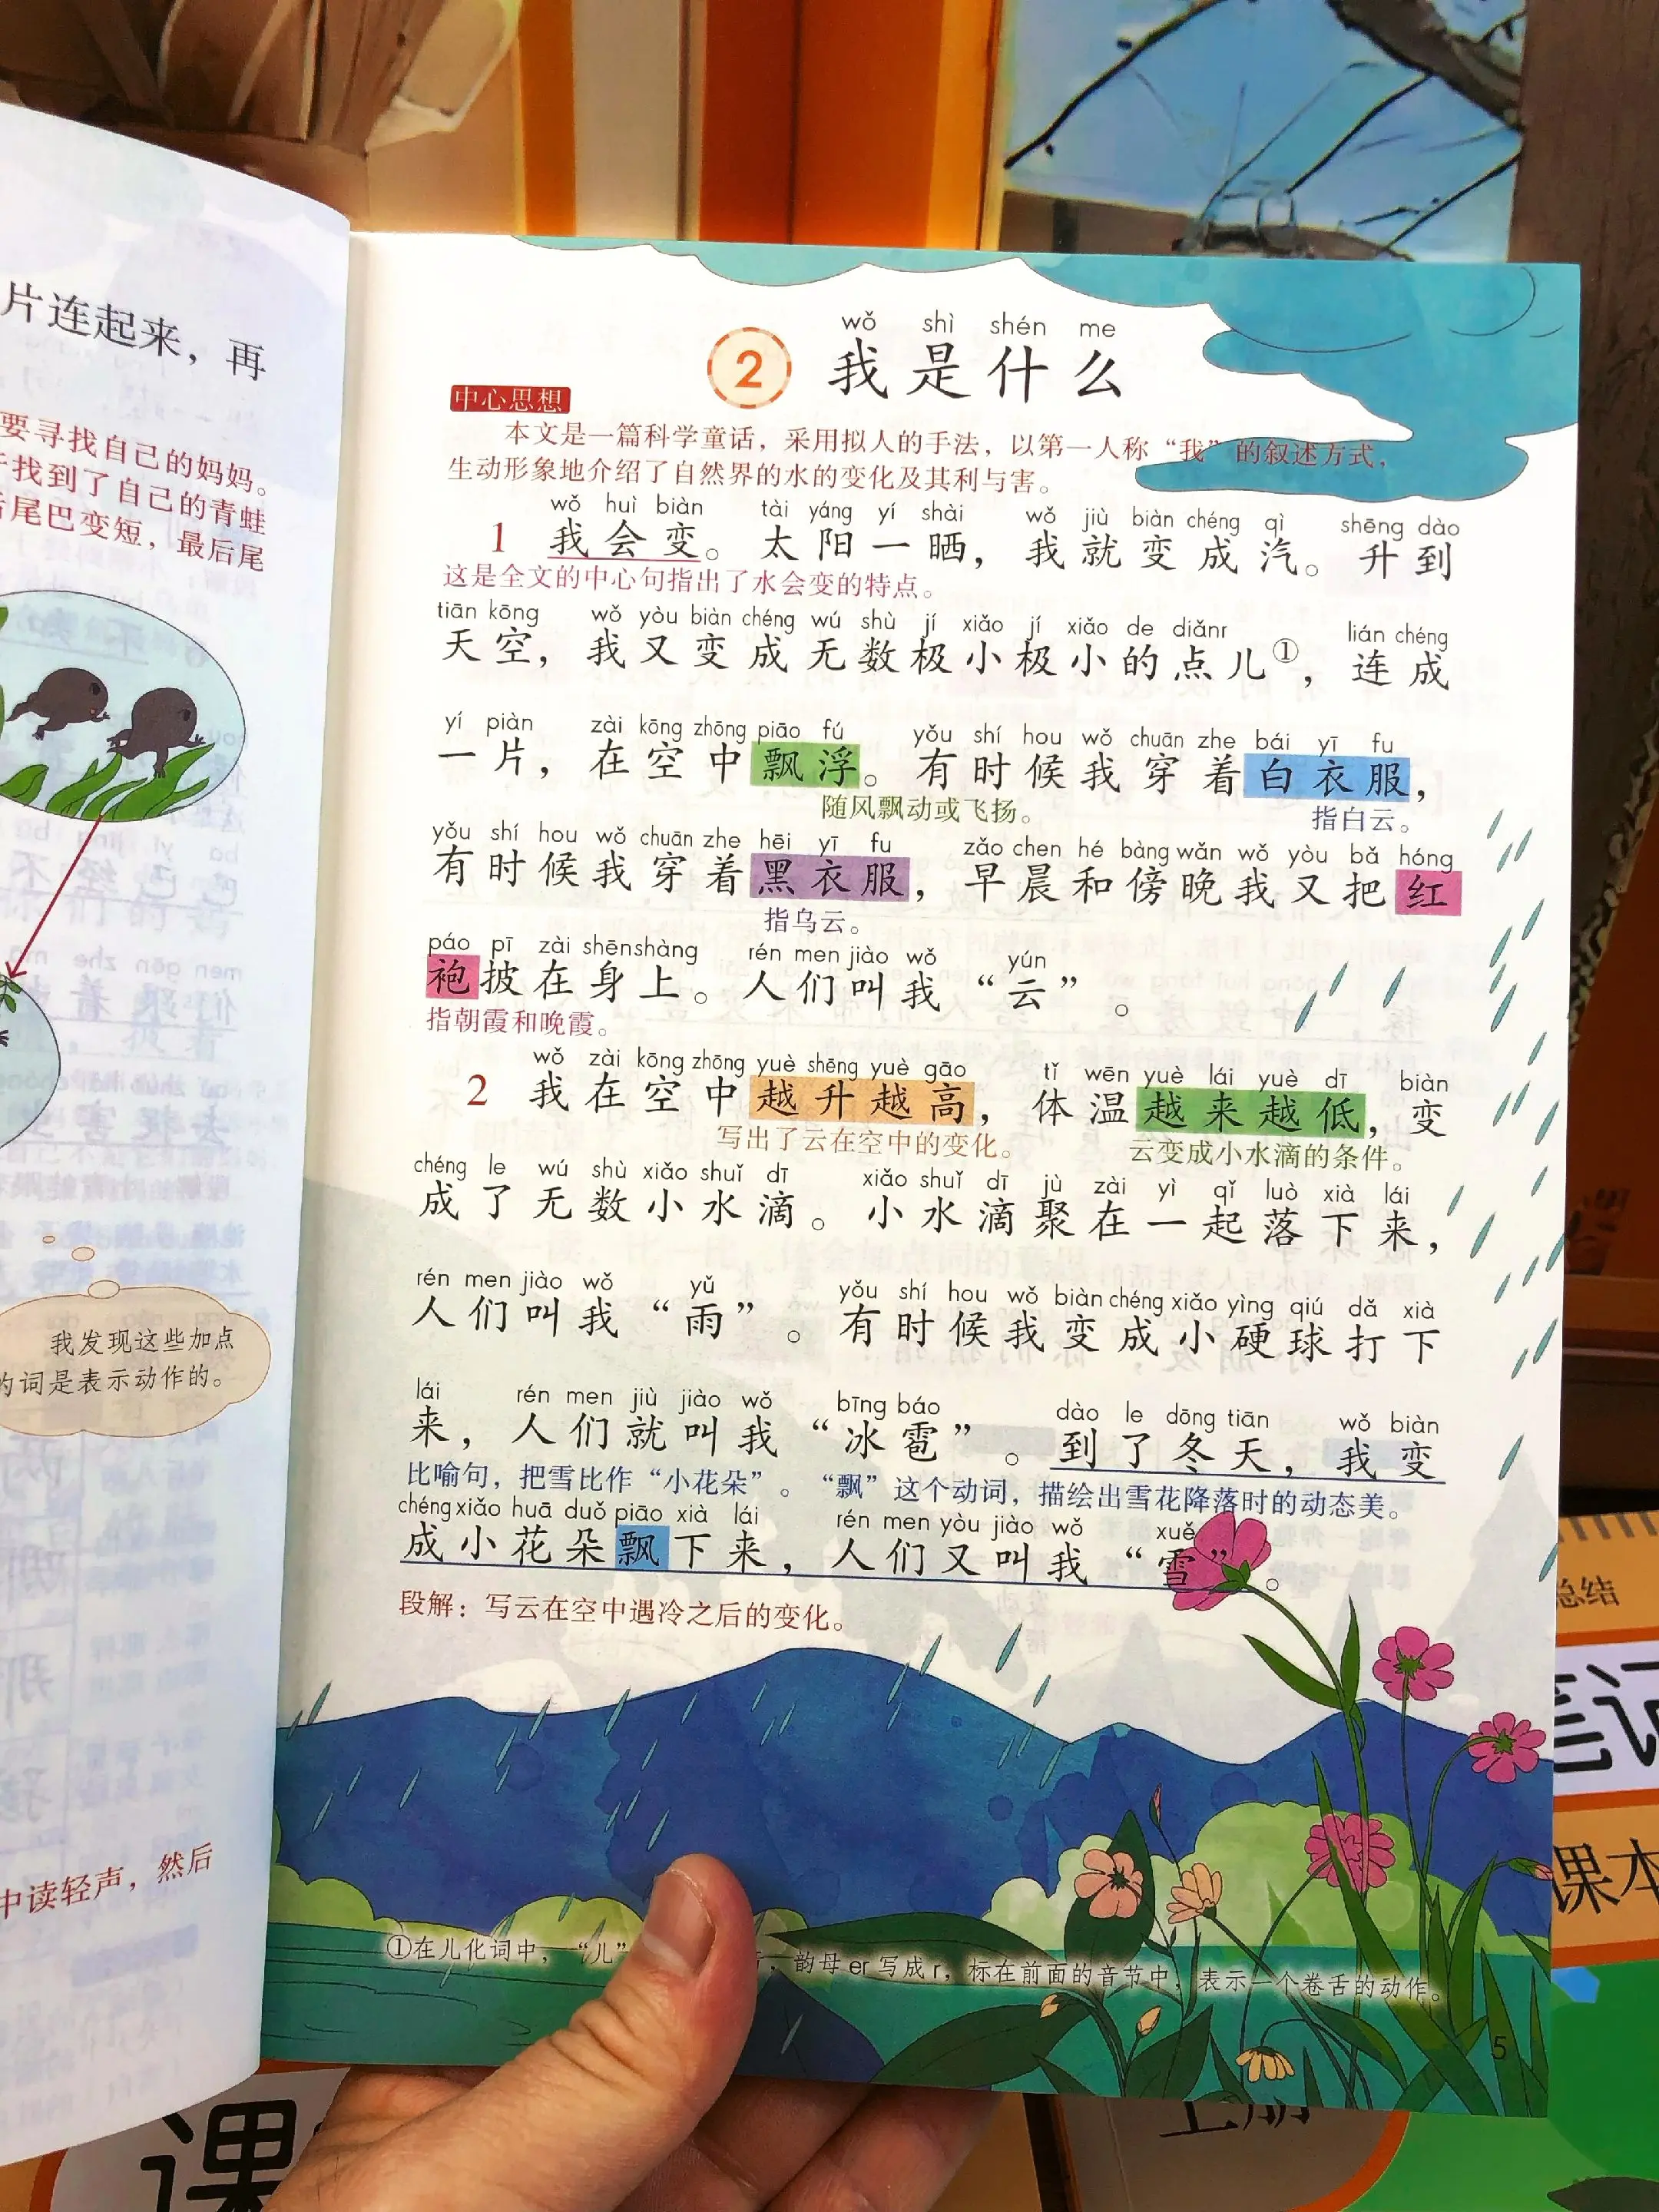 片连起来，再
要寻找自己的妈妈。
找到了自己的青蛙
尾巴变短，最后尾
我发现这些加点
的词是表示动作的。
中读轻声，然后
wǒ shì shén me
2 我是什么
中心思想
本文是一篇科学童话，采用拟人的手法，以第一人称“我”的叙述方式，
生动形象地介绍了自然界的水的变化及其利与害。
wǒ huì biàn tài yáng yí shài wǒ jiù biàn chéng qì shēng dào
1 我会变。太阳一晒，我就变成汽。升到
这是全文的中心句指出了水会变的特点。
tiān kōng wǒ yòu biàn chéng wú shù jí xiǎo jí xiǎo de diǎnr lián chéng
天空，我又变成无数极小极小的点儿①，连成
yí piàn zài kōng zhōng piāo fú yǒu shí hou wǒ chuān zhe bái yī fu
一片，在空中飘浮。有时候我穿着白衣服，
随风飘动或飞扬。 指白云。
yǒu shí hou wǒ chuān zhe hēi yī fu zǎo chen hé bàng wǎn wǒ yòu bǎ hóng
有时候我穿着黑衣服，早晨和傍晚我又把红
指乌云。
páo pī zài shēnshàng rén men jiào wǒ yún
袍披在身上。人们叫我“云”。
指朝霞和晚霞。
wǒ zài kōng zhōng yuè shēng yuè gāo tǐ wēn yuè lái yuè dī biàn
2 我在空中越升越高，体温越来越低，变
写出了云在空中的变化。 云变成小水滴的条件。
chéng le wú shù xiǎo shuǐ dī xiǎo shuǐ dī jù zài yì qǐ luò xià lái
成了无数小水滴。小水滴聚在一起落下来，
rén men jiào wǒ yǔ yǒu shí hou wǒ biàn chéng xiǎo yìng qiú dǎ xià
人们叫我“雨”。有时候我变成小硬球打下
lái rén men jiù jiào wǒ bīng báo dào le dōng tiān wǒ biàn
来，人们就叫我“冰雹”。到了冬天，我变
比喻句，把雪比作“小花朵”。“飘”这个动词，描绘出雪花降落时的动态美。
chéng xiǎo huā duǒ piāo xià lái rén men yòu jiào wǒ xuě
成小花朵飘下来，人们又叫我“雪”。
段解：写云在空中遇冷之后的变化。
①在儿化词中，“儿” ，韵母er写成r，标在前面的音节中，表示一个卷舌的动作。
5
总结
笔记
课本
课
上册